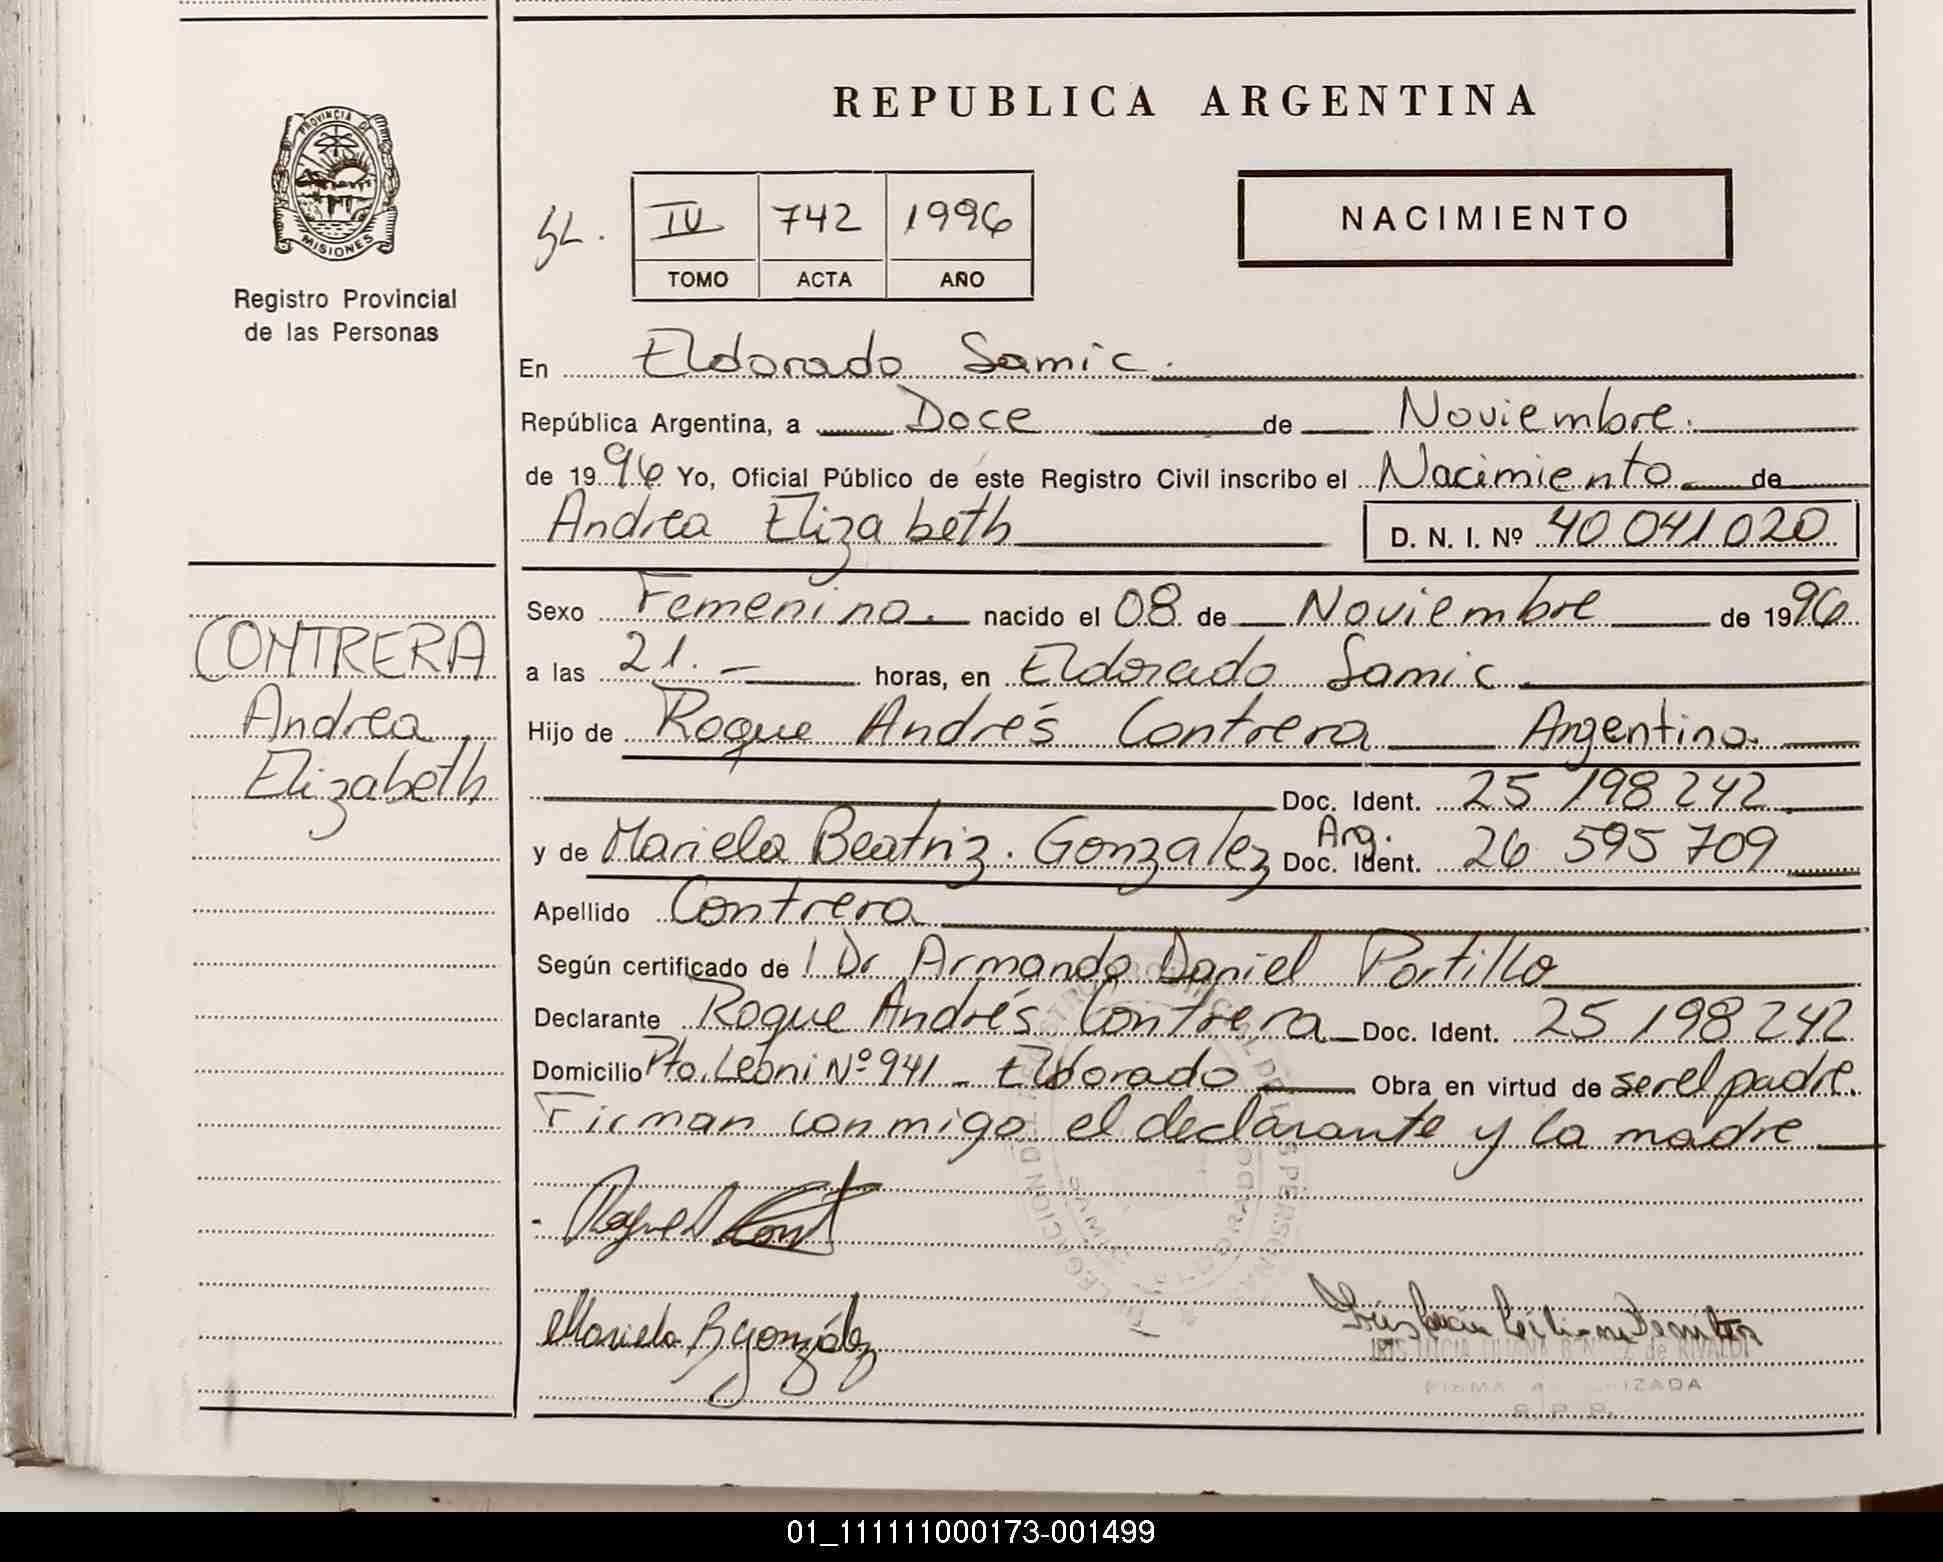 REPUBLICA ARGENTINA
PROVINCIA DE
MISIONES
Registro Provincial
de las Personas
IV 742 1996
TOMO ACTA AÑO
NACIMIENTO
En Eldorado Samic.
República Argentina, a Doce de Noviembre.
de 1996 Yo, Oficial Público de este Registro Civil inscribo el Nacimiento de
Andrea Elizabeth D. N. I. Nº 40 041 020
CONTRERA
Andrea
Elizabeth
Sexo Femenino. nacido el 08 de Noviembre de 1996
a las 21. — horas, en Eldorado Samic.
Hijo de Roque Andrés Contrera Argentino.
Doc. Ident. 25 198 242
y de Mariela Beatriz. Gonzalez Arg. Doc. Ident. 26 595 709
Apellido Contrera
Según certificado de l Dr Armando Daniel Portillo
Declarante Roque Andrés Contrera Doc. Ident. 25 198 242
Domicilio Pto. Leoni Nº 941 - Eldorado Obra en virtud de ser el padre.
Firman conmigo el declarante y la madre
Mariela B González
de RIVALDI
01_111111000173-001499